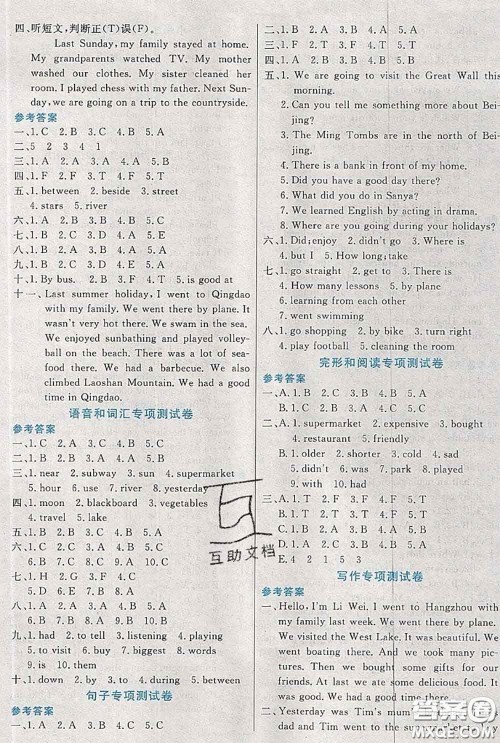 四、听短文,判断正(T)误(F)。
Last Sunday, my family stayed at home.
My grandparents watched TV. My mother
washed our clothes. My sister cleaned her
room. I played chess with my father. Next Sun-
day, we are going on a trip to the countryside.
参考答案
一、1. C 2. B 3. C 4. B 5. A
二、5 2 3 4 1
四、1. F 2. T 3. F 4. T 5. T
五、1. between 2. beside 3. street
4. stars 5. river
六、1. A 2. B 3. C 4. B 5. A
七、1. C 2. B 3. B 4. A 5. C
九、1. D 2. A 3. B 4. C 5. E
十、1. B 2. A 3. A 4. C 5. C
十一、1. F 2. F 3. T 4. T 5. is good at
十一、 Last summer holiday, I went to Qingdao
with my family. We went there by plane. It
was very hot there. We swam in the sea. We
enjoyed sunbathing and played volleyball
on the beach. There was a lot of sea-
food there. We had a barbecue. We also
climbed Laoshan Mountain. We had a good
time in Qingdao.
语音和词汇专项测试卷
参考答案
一、1. C 2. A 3. C 4. B 5. A
二、1. C 2. A 3. B 4. B 5. A
三、1. near 2. subway 3. sun 4. supermarket
5. hour 6. use 7. river 8. yesterday
四、1. moon 2. blackboard 3. vegetables
4. travel 5. lake
六、1. B 2. C 3. B 4. B 5. A
七、1. D 2. G 3. H 4. A 5. C
6. F 7. E 8. B
八、1. A 2. B 3. C 4. A 5. C
九、1. B 2. C 3. A 4. C 5. A
十、1. had 2. to tell 3. listening
4. playing
5. to visit 6. buy 7. Biggest
8. words 9. is 10. from
十一、1. down 2. to 3. during 4. between
5. with
句子专项测试卷
参考答案
一、1. A 2. A 3. C 4. B 5. C
二、1. A 2. C 3. B 4. A 5. C
三、1. B 2. D 3. A 4. E 5. C
四、1. D 2. A 3. C 4. B 5. E
五、1. We are going to visit the Great Wall this
morning.
2. Can you tell me something more about Bei-
jing?
3. The Ming Tombs are in the north of Bei-
jing.
4. There is a bank in front of my home.
5. Did you have a good day there?
6. What did you do in Sanya?
7. We learned English by acting in drama.
8. Where are you going during your holidays?
六、1. Did;enjoy 2. didn't go 3. Where is
4. but I 5. How;take
七、1. go straight 2. get to 3. There is
4. How many lessons 5. by plane
6. learning from each other
7. went swimming
八、1. go shopping 2. by bike 3. go boating
4. playing football 5. cleaning the room
完形和阅读专项测试卷
参考答案
一、A. 1. B 2. C 3. B 4. A 5. C
B. 1. C 2. B 3. A 4. C 5. A
二、A. 1. supermarket 2. expensive 3. bought
4. restaurant 5. friendly
B. 1. older 2. shorter 3. thinner
4. cold 5. hotter 6. smaller
7. bigger 8. younger
9. with 10. had
三、A. 1. T 2. F 3. F 4. F 5. T
B. 1. T 2. F 3. F 4. T 5. T
C. 1. A 2. A 3. C 4. C 5. C
D. 1. A 2. B 3. C 4. A 5. C
E. 4 2 1 5 3
写作专项测试卷
参考答案
一、Hello, I'm Li Wei. I went to Hangzhou with
my family last week. We went there by plane.
We visited the West Lake. It was beautiful.
We went boating there. And we took many
pictures. Then we bought some gifts for our
friends. We had a good time there.
二、Yesterday was Tim's mum's
dad and Tim went to the
互助文档
答案圈
MXQE.COM